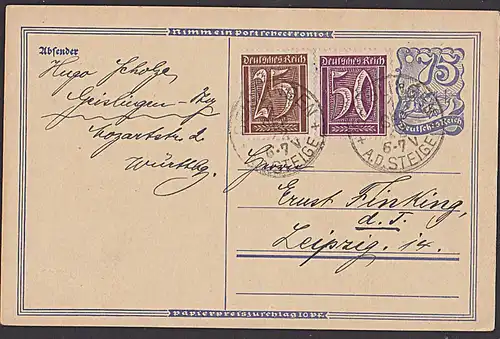 Nimm ein Postscheckkonto!
Absender
Hugo Scholze,
Geislingen-Stg
Mozartstr 2
Württbg.
Deutsches Reich
25
Deutsches Reich
50
75
Deutsches Reich
GEISLINGEN
6-7 V
A.D. STEIGE
6-7 V
A.D. STEIGE
Herrn
Ernst Finking,
d. J.
Leipzig. 14.
Papierpreiszuschlag 10 Pf.